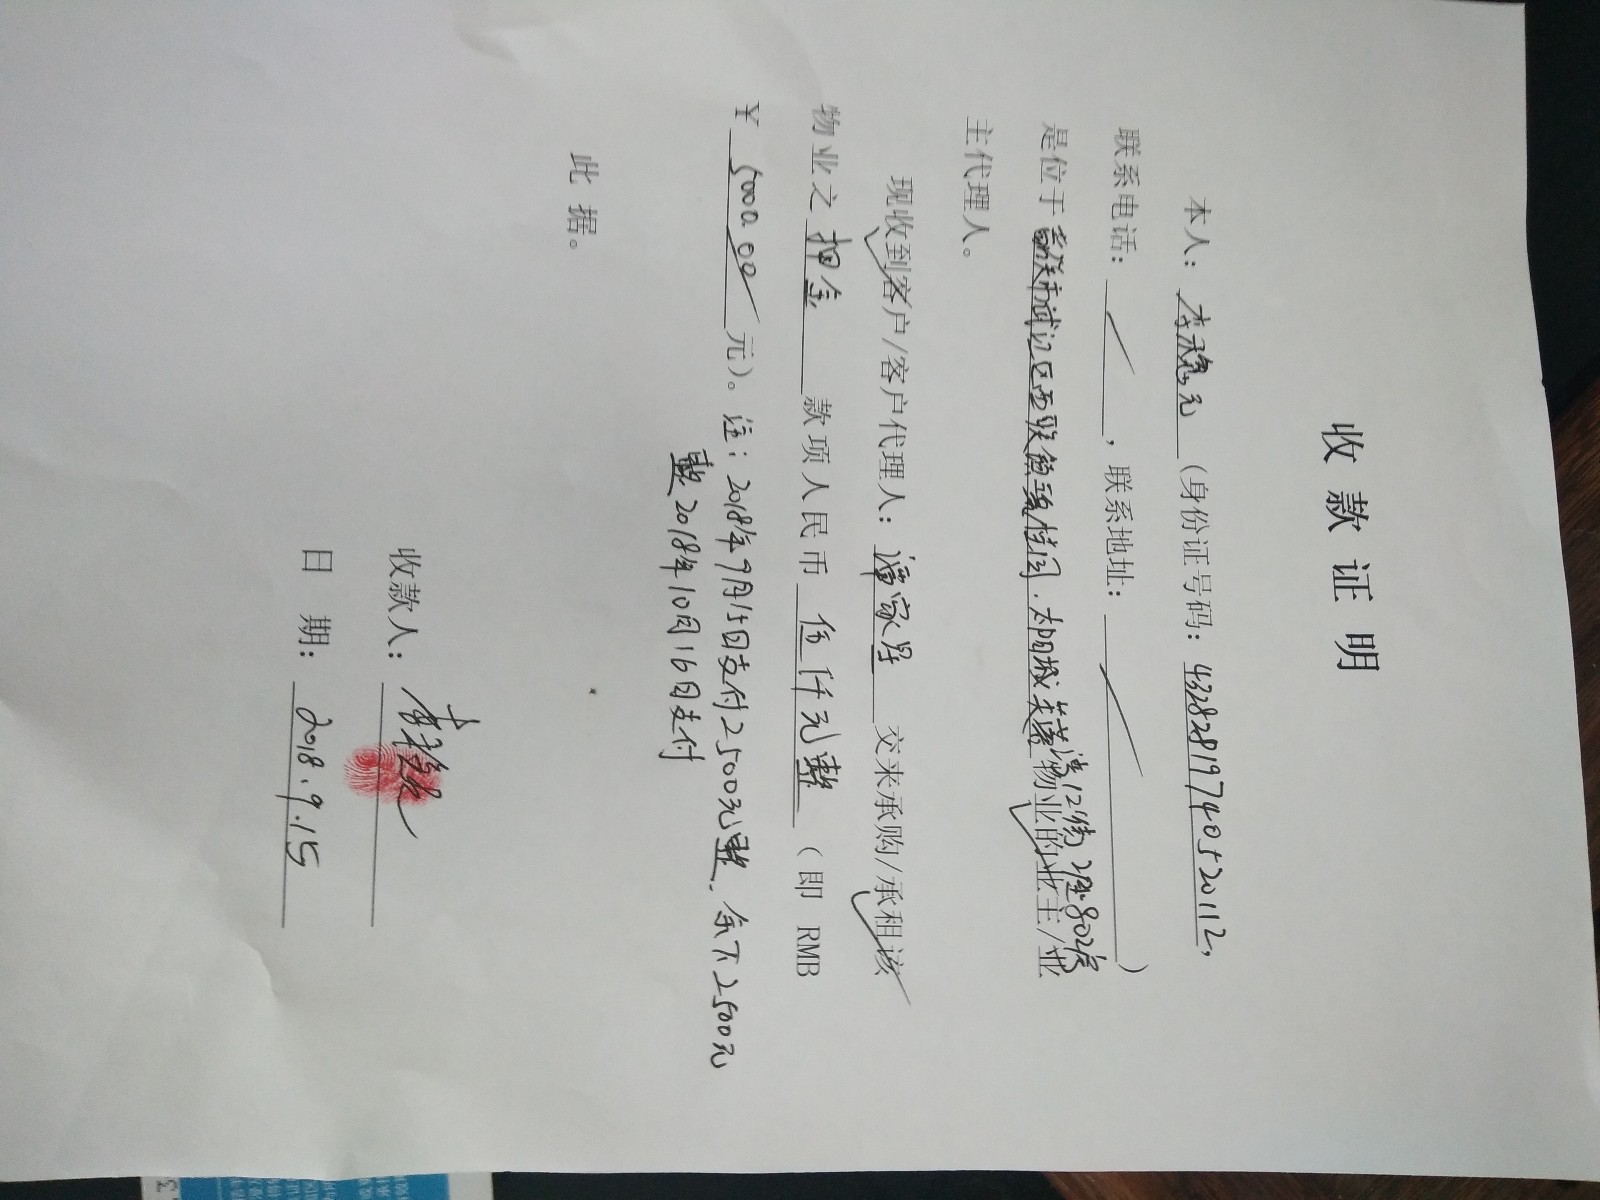 收款证明
本人：李 元（身份证号码：43282819740520112，
联系电话： ，联系地址： ）
是位于 区西联 ．太阳城 12街2座802房物业的业主/业
主代理人。
现收到客户/客户代理人：潘家 交来承购/承租该
物业之 押金 款项人民币 伍仟元整 （即 RMB
￥ 5000.00 元）。注：2018年9月15日支付2500元整．余下2500元
整2018年10月16日支付
此据。
收款人：李
日 期：2018.9.15